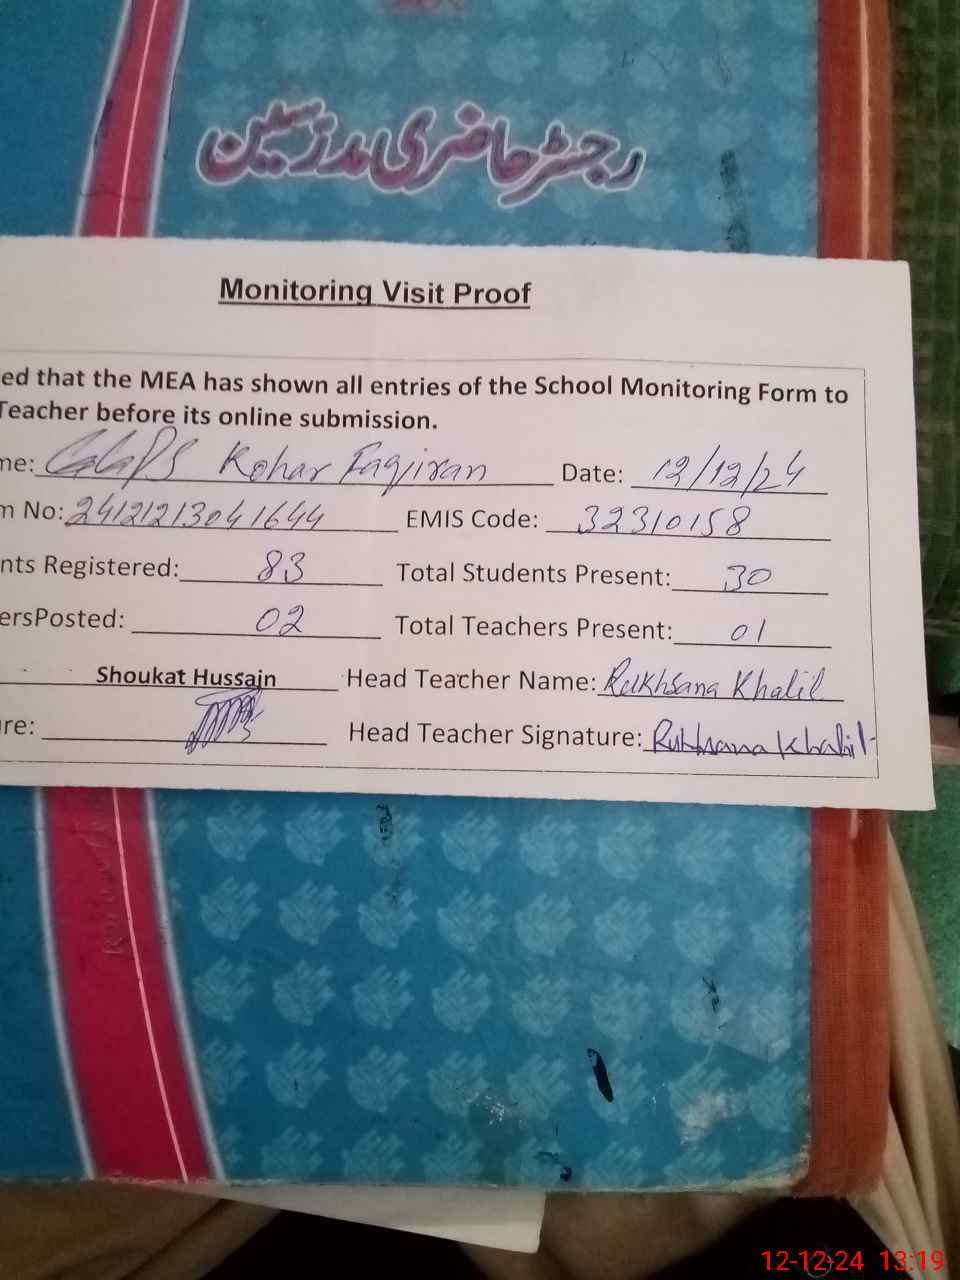 رجسٹر حاضری مدرسین
Monitoring Visit Proof
ed that the MEA has shown all entries of the School Monitoring Form to
Teacher before its online submission.
me: GGPS Kohar Faqiran Date: 12/12/24
m No: 24121213041644 EMIS Code: 32310158
nts Registered: 83 Total Students Present: 30
ersPosted: 02 Total Teachers Present: 01
Shoukat Hussain Head Teacher Name: Rukhsana Khalil
re: Head Teacher Signature: Rukhsana Khalil
12-12-24 13:19